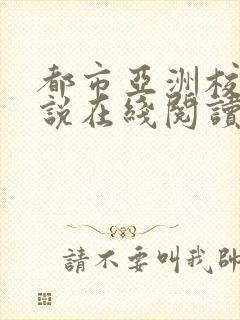 都市亞洲校
說在綫閱讀
請不要叫我帥